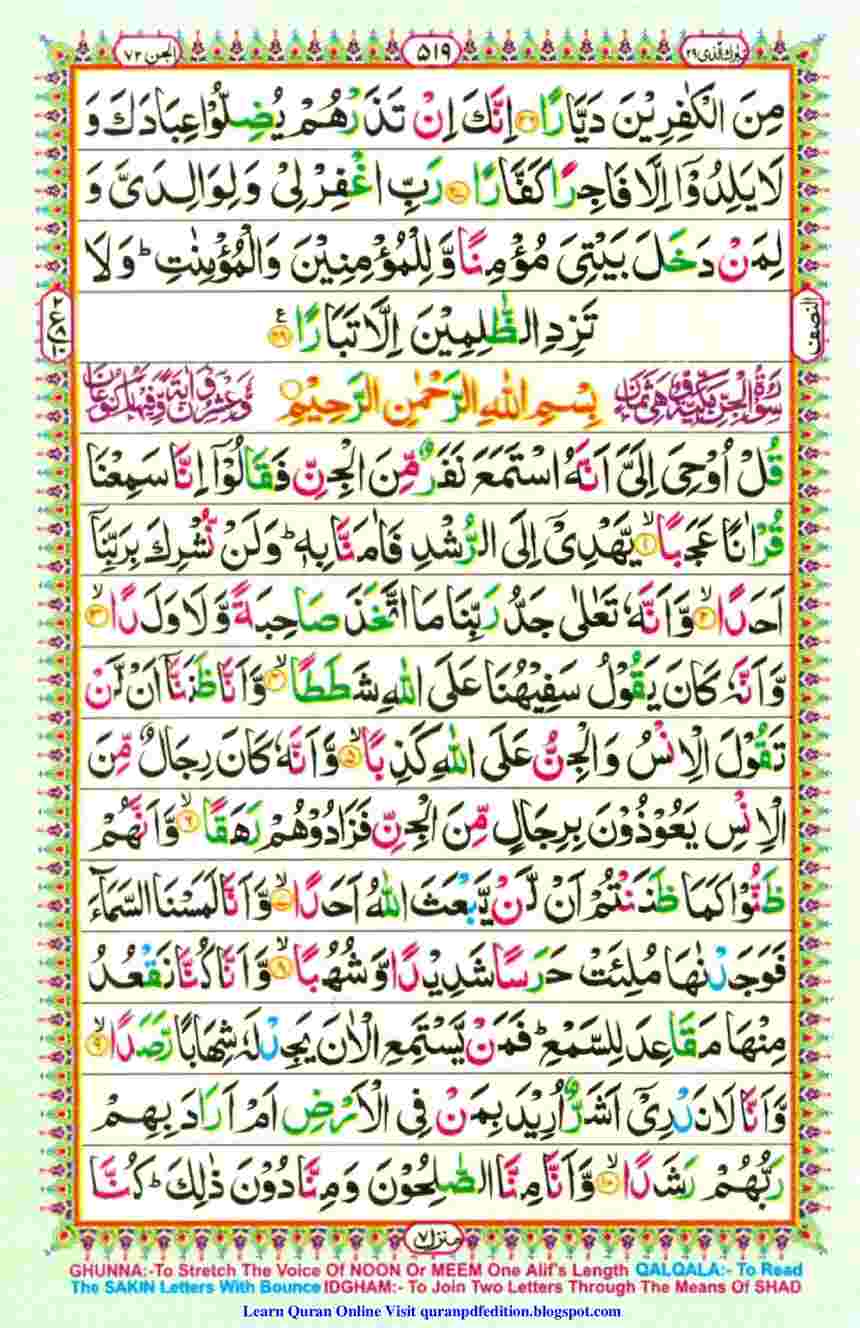 تبٰرك الّذی ٢٩
٥١٩
الجن ٧٢
مِنَ الْكٰفِرِیْنَ دَیَّارًا ﴿۲۶﴾ اِنَّكَ اِنْ تَذَرْهُمْ یُضِلُّوْا عِبَادَكَ وَ
لَا یَلِدُوْۤا اِلَّا فَاجِرًا كَفَّارًا ﴿۲۷﴾ رَبِّ اغْفِرْ لِیْ وَ لِوَالِدَیَّ وَ
لِمَنْ دَخَلَ بَیْتِیَ مُؤْمِنًا وَّ لِلْمُؤْمِنِیْنَ وَ الْمُؤْمِنٰتِ ؕ وَ لَا
تَزِدِ الظّٰلِمِیْنَ اِلَّا تَبَارًا ﴿۲۸﴾ ع
النصف
سُوْرَةُ الْجِنِّ مَكِّیَّةٌ وَّ هِیَ ثَمَانٌ
بِسْمِ اللّٰهِ الرَّحْمٰنِ الرَّحِیْمِ
وَّ عِشْرُوْنَ اٰیَةً وَّ فِیْهَا رُكُوْعَانِ
قُلْ اُوْحِیَ اِلَیَّ اَنَّهُ اسْتَمَعَ نَفَرٌ مِّنَ الْجِنِّ فَقَالُوْۤا اِنَّا سَمِعْنَا
قُرْاٰنًا عَجَبًا ﴿۱﴾ۙ یَّهْدِیْۤ اِلَی الرُّشْدِ فَاٰمَنَّا بِهٖ ؕ وَ لَنْ نُّشْرِكَ بِرَبِّنَاۤ
اَحَدًا ﴿۲﴾ۙ وَّ اَنَّهٗ تَعٰلٰی جَدُّ رَبِّنَا مَا اتَّخَذَ صَاحِبَةً وَّ لَا وَلَدًا ﴿۳﴾ۙ
وَّ اَنَّهٗ كَانَ یَقُوْلُ سَفِیْهُنَا عَلَی اللّٰهِ شَطَطًا ﴿۴﴾ۙ وَّ اَنَّا ظَنَنَّاۤ اَنْ لَّنْ
تَقُوْلَ الْاِنْسُ وَ الْجِنُّ عَلَی اللّٰهِ كَذِبًا ﴿۵﴾ۙ وَّ اَنَّهٗ كَانَ رِجَالٌ مِّنَ
الْاِنْسِ یَعُوْذُوْنَ بِرِجَالٍ مِّنَ الْجِنِّ فَزَادُوْهُمْ رَهَقًا ﴿۶﴾ۙ وَّ اَنَّهُمْ
ظَنُّوْا كَمَا ظَنَنْتُمْ اَنْ لَّنْ یَّبْعَثَ اللّٰهُ اَحَدًا ﴿۷﴾ۙ وَّ اَنَّا لَمَسْنَا السَّمَآءَ
فَوَجَدْنٰهَا مُلِئَتْ حَرَسًا شَدِیْدًا وَّ شُهُبًا ﴿۸﴾ۙ وَّ اَنَّا كُنَّا نَقْعُدُ
مِنْهَا مَقَاعِدَ لِلسَّمْعِ ؕ فَمَنْ یَّسْتَمِعِ الْاٰنَ یَجِدْ لَهٗ شِهَابًا رَّصَدًا ﴿۹﴾ۙ
وَّ اَنَّا لَا نَدْرِیْۤ اَشَرٌّ اُرِیْدَ بِمَنْ فِی الْاَرْضِ اَمْ اَرَادَ بِهِمْ
رَبُّهُمْ رَشَدًا ﴿۱۰﴾ۙ وَّ اَنَّا مِنَّا الصّٰلِحُوْنَ وَ مِنَّا دُوْنَ ذٰلِكَ ؕ كُنَّا
منزل ٧
GHUNNA:-To Stretch The Voice Of NOON Or MEEM One Alif's Length QALQALA:- To Read
The SAKIN Letters With Bounce IDGHAM:- To Join Two Letters Through The Means Of SHAD
Learn Quran Online Visit quranpdfedition.blogspot.com